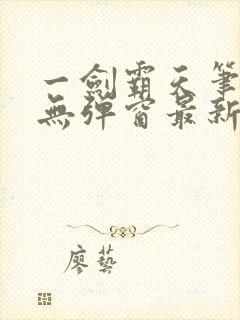 一劍霸天筆
無彈窗最新
廖藝